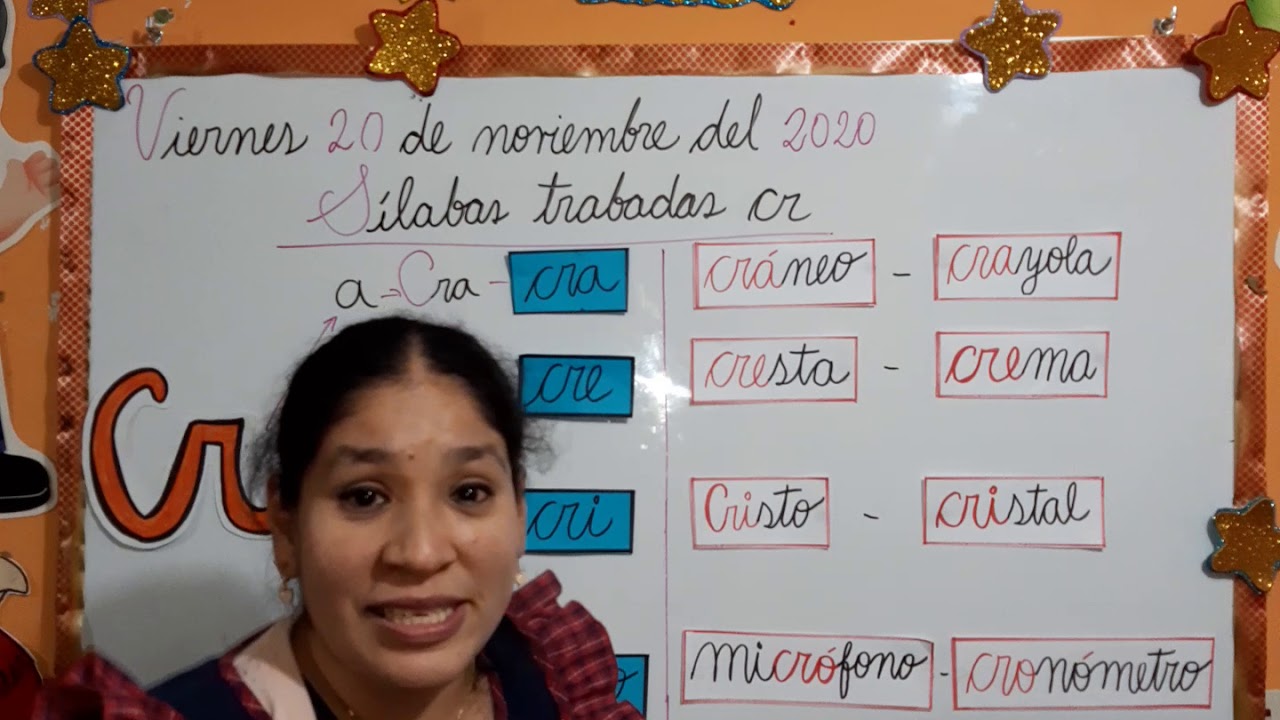 Viernes 20 de noviembre del 2020
Sílabas trabadas cr
a → Cra - cra
cráneo - crayola
cre
cresta - crema
Cr
cri
Cristo - cristal
micrófono - cronómetro